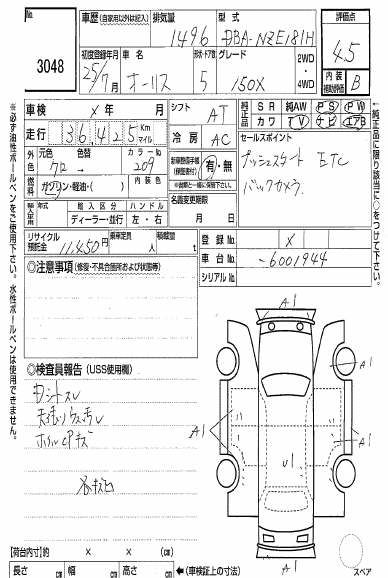 No. 3048
車歴 (自家用以外は記入)
排気量 1496
型式 DBA-NZE181H
評価点 4.5
初度登録年月 25/7月
車名 オーリス
形状・ドア数 5
グレード 150X
2WD・4WD
内装補助評価 B
車検 X年 月
走行 36,425 Km マイル
シフト AT
冷房 AC
純正品 SR 純AW PS PW
カワ TV ナビ エアB
セールスポイント
プッシュスタート ETC
バックカメラ
元色 クロ
色替
カラーNo. 209
燃料 ガソリン・軽油・( )
内装色
新車整備手帳(保証書付) 有・無
※装備と一緒にご提出下さい。
輸入車 年式 輸入区分 ハンドル
ディーラー・並行 左・右
名義変更期限 月 日
リサイクル預託金 11,450円
乗車定員 人
積載量 t
登録No. X
車台No. -6001944
シリアルNo.
◎注意事項 (修復・不具合箇所および状態等)
◎検査員報告 (USS使用欄)
A1
A1
A1
A1
A1
U1
A1
[荷台内寸] × × (cm)
長さ cm 幅 cm 高さ cm ←(車検証上の寸法)
スペア
※必ず油性ボールペンをご使用下さい。水性ボールペンは使用できません。
←純正品に限り該当に○をつけて下さい。